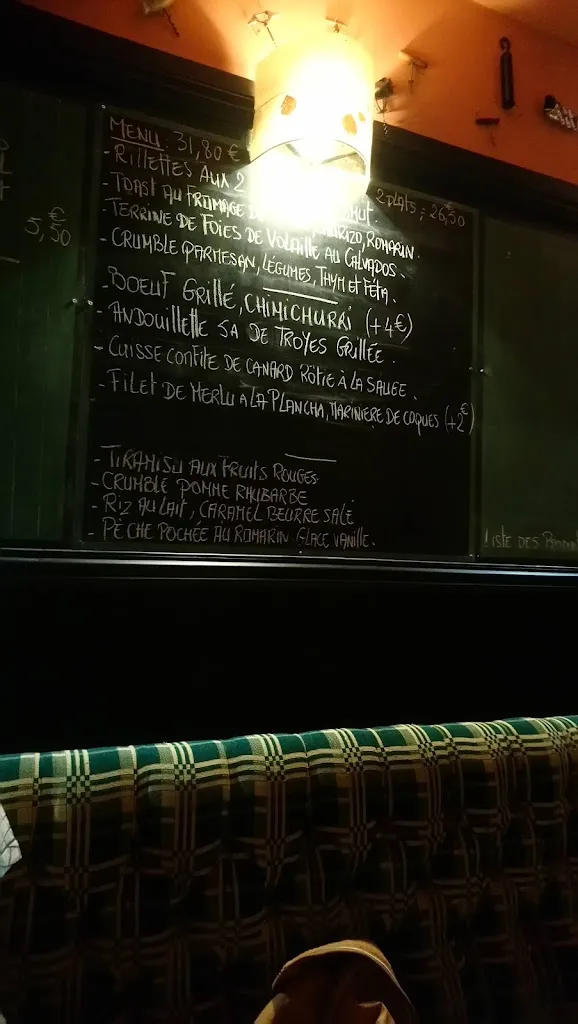 MENU: 31,80 €
2 PLATS : 26,50
- RILLETTES AUX 2
- TOAST AU FROMAGE CHORIZO, ROMARIN.
- TERRINE DE FOIES DE VOLAILLE AU CALVADOS.
- CRUMBLE PARMESAN, LÉGUMES, THYM ET FÉTA.
- BOEUF GRILLÉ, CHIMICHURRI (+4€)
- ANDOUILLETTE 5A DE TROYES GRILLÉE.
- CUISSE CONFITE DE CANARD RÔTIE À LA SAUGE.
- FILET DE MERLU A LA PLANCHA, MARINIERE DE COQUES (+2€)
- TIRAMISU AUX FRUITS ROUGES
- CRUMBLE POMME RHUBARBE
- RIZ AU LAIT, CARAMEL BEURRE SALÉ
- PÈCHE POCHÉE AU ROMARIN GLACE VANILLE.
5,50 €
LISTE DES